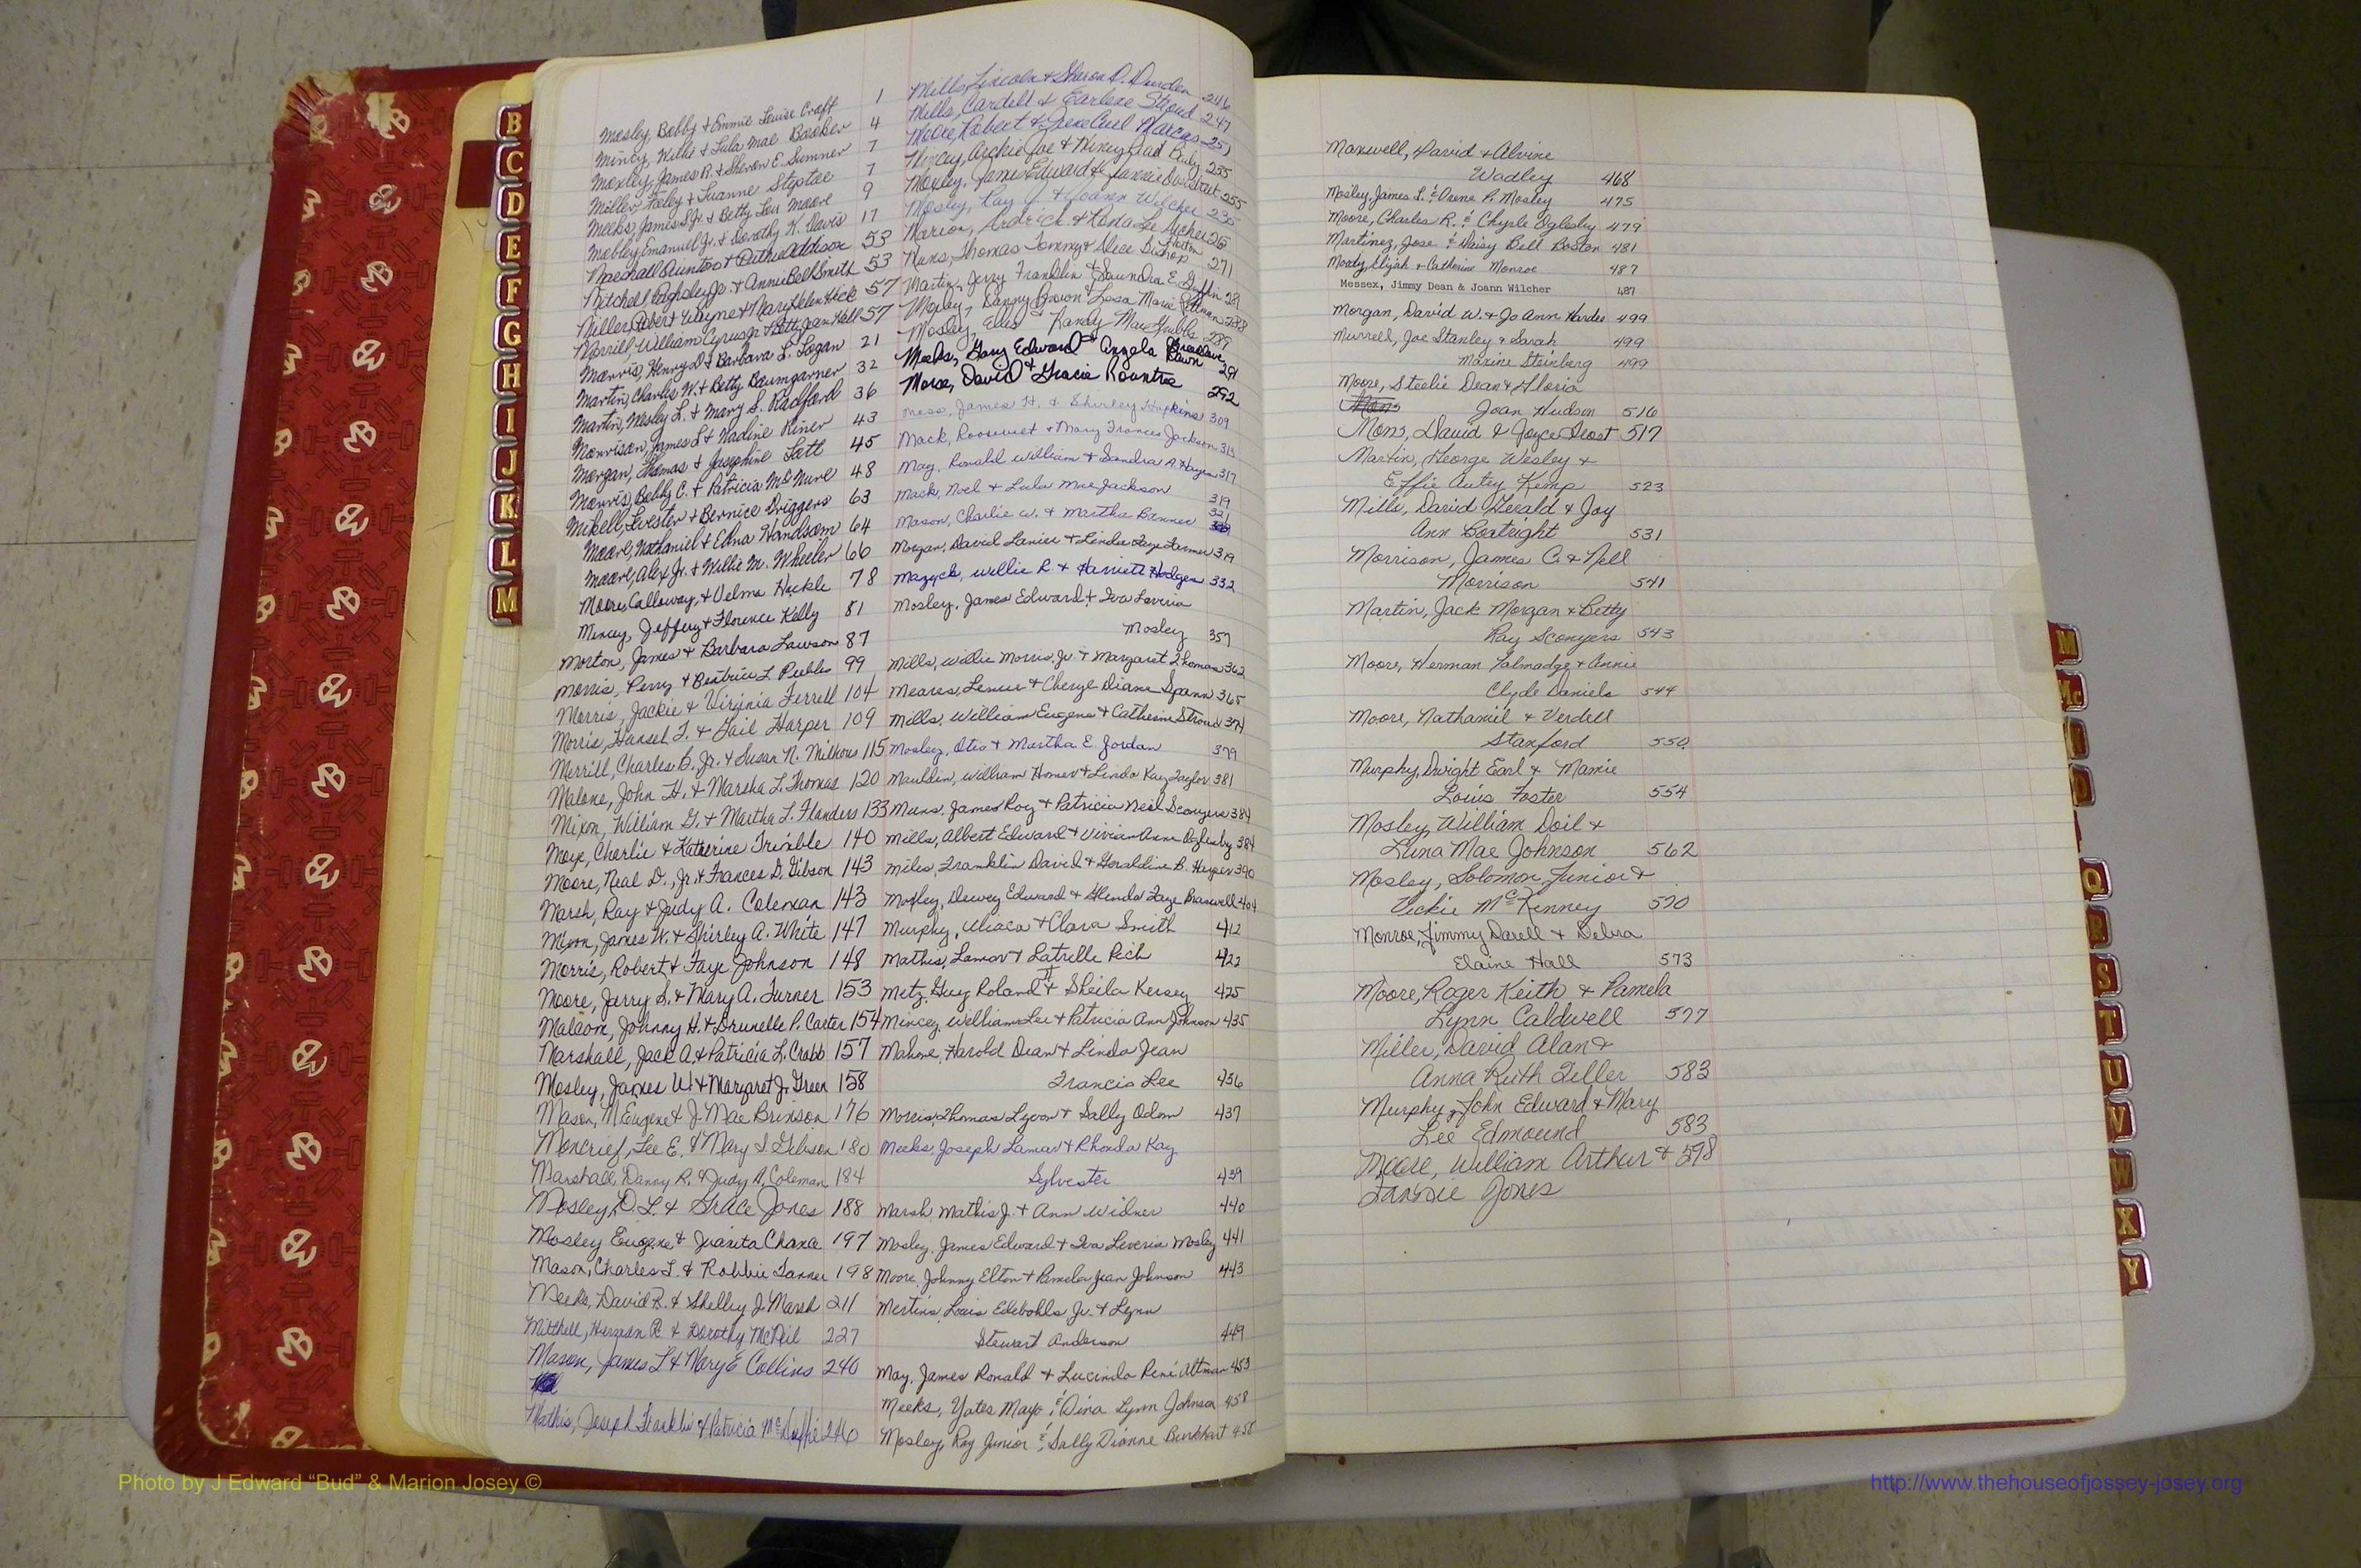 Mosley, Bobby & Emmie Louise Craft 1
Mincy, Willie & Lula Mae Barber 4
Moxley, James R. & Sharon E. Sumner 7
Miller, Foley & Luanne Steptoe 7
Meeks, James S. Jr. & Betty Lou Moore 9
Mobley, Emanuel Jr. & Dorothy K. Davis 17
Marshall & Addison 53
Mitchell Jr. & Annie Bell Smith 53
Miller, Albert Wayne & Mary Helen 57
Morrill, William Cyrus Jr. & Betty Jean Hall 57
Morris, Henry D & Barbara L. Logan 21
Martin, Charlie W. & Betty Baumgarner 32
Martin, Wesley L. & Mary S. Radford 36
Morrison, James L & Nadine Kiner 43
Morgan, Thomas & Josephine Lott 45
Morris, Bobby C. & Patricia McNure 48
Mikell, Lester & Bernice Driggers 63
Moore, Nathaniel & Edna Handsom 64
Moore, Alex Jr. & Willie M. Wheeler 66
Moore, Calloway, & Velma Huckle 78
Mincey, Jeffery & Florence Kelly 81
Morton, James & Barbara Lawson 87
Morris, Perry & Beatrice L Peebles 99
Morris, Jackie & Virginia Ferrell 104
Morris, Hansel T. & Gail Harper 109
Merrill, Charles B. Jr. & Susan N. Milhous 115
Malone, John H. & Marsha L. Thomas 120
Mixon, William G. & Martha L. Flanders 133
Moye, Charlie & Katherine Trimble 140
Moore, Neal D., Jr. & Frances D. Gibson 143
Marsh, Ray & Judy A. Coleman 143
Mixon, James W. & Shirley A. White 147
Morris, Robert & Faye Johnson 148
Moore, Jerry S. & Mary A. Turner 153
Malcom, Johnny H. & Drunelle P. Carter 154
Marshall, Jack A & Patricia L. Crabb 157
Mosley, James W. & Margaret J. Green 158
Mason, N Eugene & J. Mae Brinson 176
Moncrief, Lee E. & Mary I Gibson 180
Marshall, Danny R. & Judy A. Coleman 184
Mosley, D. L. & Grace Jones 188
Mosley Eugene & Juanita Chance 197
Mason, Charles L. & Robbie Tanner 198
Meeks, David R. & Shelley J. Marsh 211
Mitchell, Herman R & Dorothy McNeil 227
Mason, James L & Mary E Collins 240
Mathis, Joseph Franklin & Patricia McDuffie 240
Mills, Lincoln & Sharon D. Durden 246
Mills, Cardell & Earlene Stroud 247
Moore, Robert & Marcus 251
Mincey, Archie Joe & 255
Moxley, James Edward & 255
Mosley, Ray J & Joann Wilcher 235
Marion, & Lee
Thomas Tommy & Bishop 271
Martin, Jerry Franklin & Saundra E. Griffin 281
Danny & Lesa Marie Pittman 288
Mosley, & Randy Mae Grubbs 289
Meeks, Gary Edward & Angela Dawn 291
Morse, David & Gracie Rountree 292
James H. & Shirley Hopkins 309
Mack, Roosevelt & Mary Frances Jackson 313
May, Ronald William & Sandra A. Hayes 317
Mack, Noel & Lula Mae Jackson 319
Mason, Charlie W. & Martha 321
Morgan, David Lanier & Linda Faye Farmer 319
Mazyck, Willie R. & Harriett Hodges 332
Mosley, James Edward & Iva Laveria
Mosley 357
Mills, Willie Morris, Jr. & Margaret Thomas 362
Meares, Lemue & Cheryl Diane Spann 365
Mills, William Eugene & Catherine Stroud 374
Mosley, Otis & Martha E. Jordan 379
Mauldin, William Homer & Linda Kay Taylor 381
James Roy & Patricia Neil Sconyers 384
Mills, Albert Edward & Vivian Ann Oglesby 384
Miles, Franklin David & Geraldine B. 390
Motley, Dewey Edward & Glenda Faye Braswell 404
Murphy, & Clara Smith 412
Mathis, Lamar & Latrelle Rich 422
Metz, Guy Roland II & Sheila Kersey 425
Mincey, William Lee & Patricia Ann Johnson 435
Mahone, Harold Dean & Linda Jean
Francis Lee 436
Morris, Thomas Lyvon & Sally Odom 437
Meeks, Joseph Lamar & Rhonda Kay
Sylvester 439
Marsh, Mathis J. & Ann Widner 440
Mosley, James Edward & Iva Leveria Mosley 441
Moore, Johnny Elton & Pamela Jean Johnson 443
Mertins, Louis Edebohls Jr. & Lynn
Stewart Anderson 449
May, James Ronald & Lucinda René Altman 453
Meeks, Yates Mayo & Dina Lynn Johnson 458
Mosley, Roy Junior & Sally Dianne Burkhart 458
Maxwell, David & Alvine
Wadley 468
Mosley, James L. & Orene P. Mosley 475
Moore, Charles R. & Chysle Oglesby 479
Martinez, Jose & Daisy Bell Boston 481
Moody, Elijah & Catherine Monroe 487
Messex, Jimmy Dean & Joann Wilcher 487
Morgan, David W. & Jo Ann Hardes 499
Murrell, Joe Stanley & Sarah 499
Maxine Steinberg 499
Moore, Steelie Dean & Gloria
Joan Hudson 516
Mons, David & Joyce Frost 517
Martin, George Wesley &
Effie Autry Kemp 523
Mills, David Gerald & Joy
Ann Boatright 531
Morrison, James C. & Nell
Morrison 541
Martin, Jack Morgan & Betty
Ray Sconyers 543
Moore, Herman Talmadge & Annie
Clyde Daniels 544
Moore, Nathaniel & Verdell
Stanford 550
Murphy, Dwight Earl & Mamie
Louis Foster 554
Mosley, William Doil &
Luna Mae Johnson 562
Mosley, Solomon, Junior &
Vickie McKenney 570
Monroe, Jimmy Darell & Debra
Elaine Hall 573
Moore, Roger Keith & Pamela
Lynn Caldwell 577
Miller, David Alan &
Anna Ruth Zeller 583
Murphy, John Edward & Mary
Lee Edmound 583
Moore, William Arthur & 598
Fannie Jones
B
C
D
E
F
G
H
I
J
K
L
M
M
Mc
N
O
P
Q
R
S
T
U
V
W
X
Y
Photo by J Edward “Bud” & Marion Josey ©
http://www.thehouseofjossey-josey.org